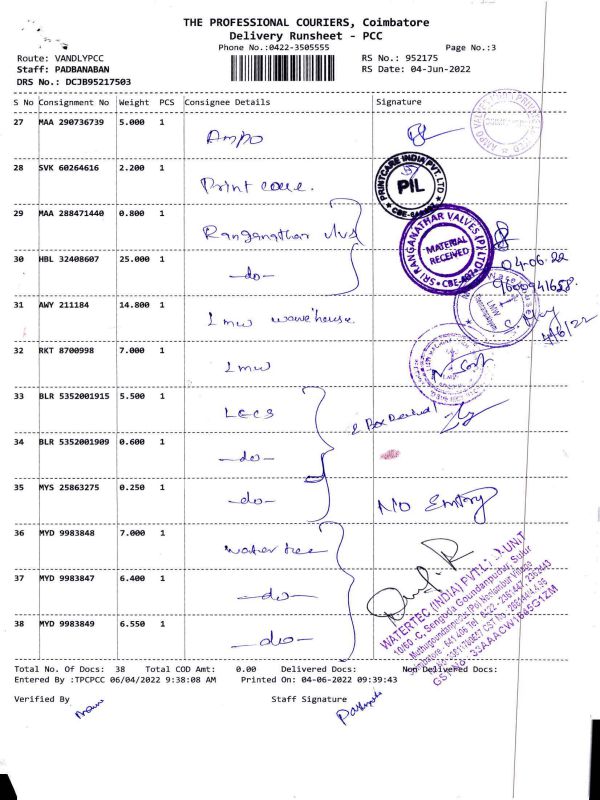 THE PROFESSIONAL COURIERS, Coimbatore
Delivery Runsheet - PCC
Phone No.:0422-3505555
Page No.:3
Route: VANDLYPCC
RS No.: 952175
Staff: PADBANABAN
RS Date: 04-Jun-2022
DRS No.: DCJB95217503
S No Consignment No Weight PCS Consignee Details Signature
27 MAA 290736739 5.000 1 Ampo
AMPO VALVES
28 SVK 60264616 2.200 1 Print care.
PRINTCARE INDIA PVT. LTD
PIL
29 MAA 288471440 0.800 1 Ranganathar vlvs
SRI RANGANATHAR VALVES (P) LTD
MATERIAL RECEIVED
30 HBL 32408607 25.000 1 -do-
04-06.22
9600941658.
31 AWY 211184 14.800 1 Lmw warehouse.
LMW
4/6/22
32 RKT 8700998 7.000 1 Lmw
33 BLR 5352001915 5.500 1 LECS
2 Box
34 BLR 5352001909 0.600 1 -do-
35 MYS 25863275 0.250 1 -do- NO Entry
36 MYD 9983848 7.000 1 water tec
37 MYD 9983847 6.400 1 -do-
38 MYD 9983849 6.550 1 -do-
WATERTEC (INDIA) PVT.LTD.-UNIT
10/60 -C, Sengoda Goundanpudur, Sulur
Coimbatore - 641 406
Total No. Of Docs: 38 Total COD Amt: 0.00 Delivered Docs: Non Delivered Docs:
Entered By :TPCPCC 06/04/2022 9:38:08 AM Printed On: 04-06-2022 09:39:43
Verified By Staff Signature